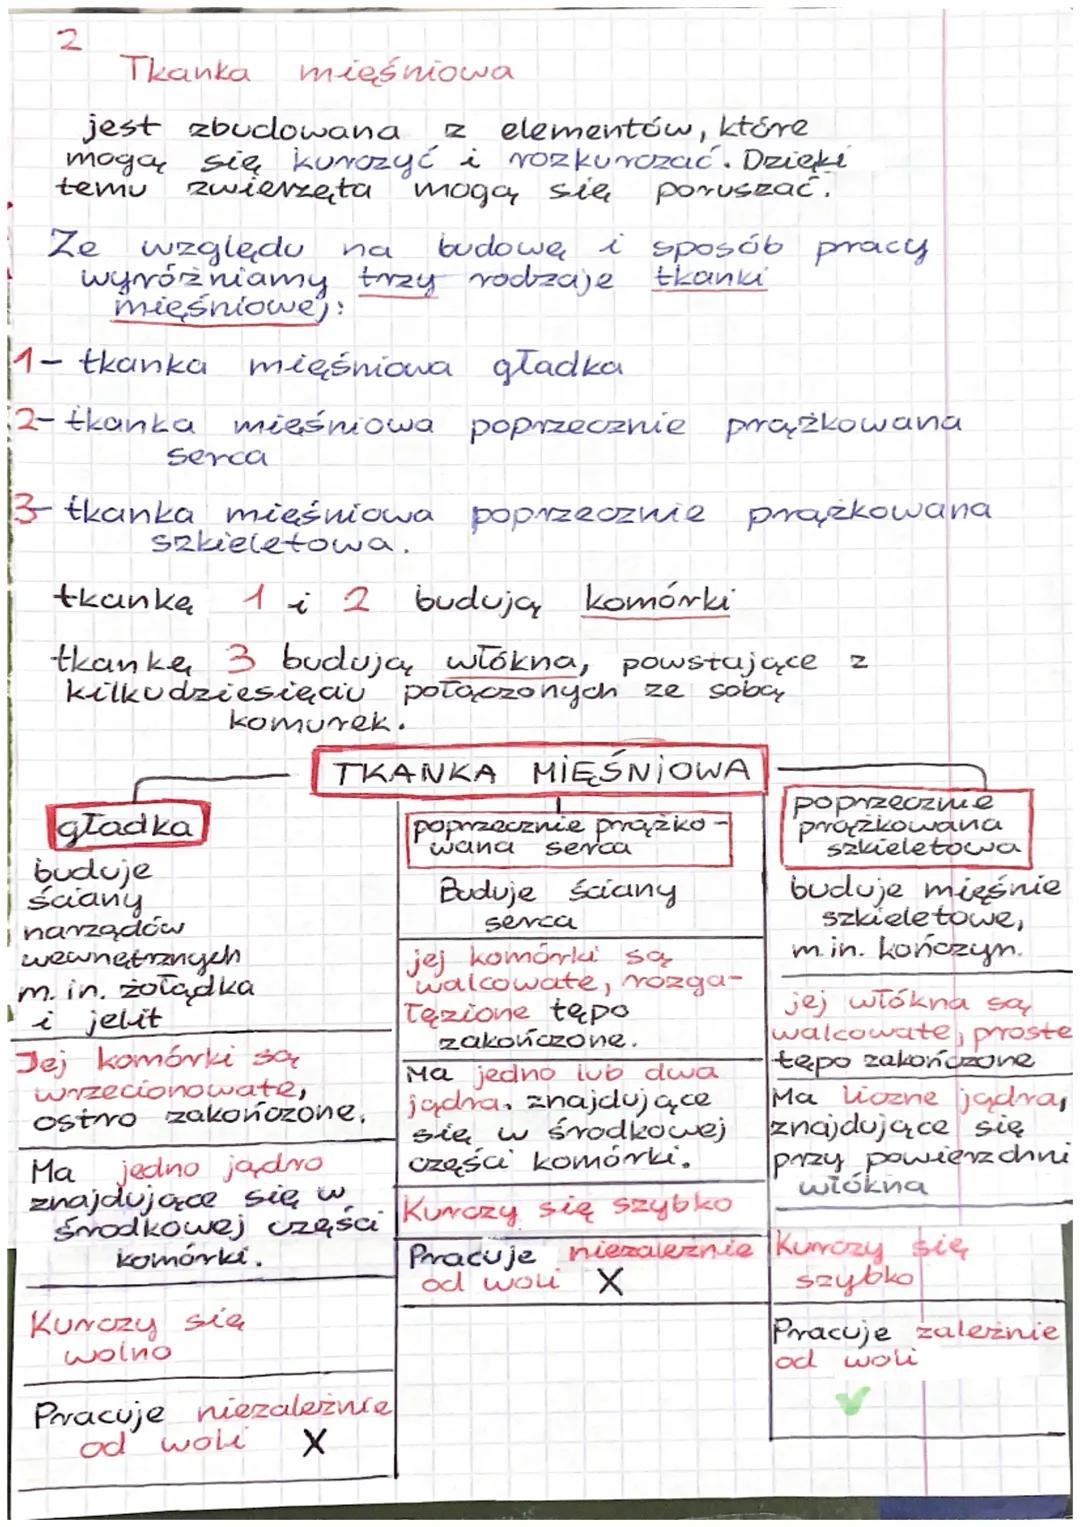 2
Tkanka mięśniowa
jest zbudowana z elementów, które
mogą się kurczyć i rozkurczać. Dzięki
temu zwierzęta mogą się poruszać.
Ze względu na budowę i sposób pracy
wyróżniamy trzy rodzaje tkanki
mięśniowej:
1- tkanka mięśniowa gładka
2- tkanka mięśniowa poprzecznie prążkowana
serca
3- tkanka mięśniowa poprzecznie prążkowana
szkieletowa.
tkankę 1 i 2 budują komórki
tkankę 3 budują włókna, powstające z
kilkudziesięciu połączonych ze sobą
komurek.
TKANKA MIĘŚNIOWA
gładka
buduje
ściany
narządów
wewnętrznych
m. in. żołądka
i jelit
Jej komórki są
wrzecionowate,
ostro zakończone.
Ma jedno jądro
znajdujące się w
środkowej części
komórki.
Kurczy się
wolno
Pracuje niezależnie
od woli X
poprzecznie prążko-
wana serca
Buduje ściany
serca
jej komórki są
walcowate, rozga-
łęzione tępo
zakończone.
Ma jedno lub dwa
jądra, znajdujące
się w środkowej
części komórki.
Kurczy się szybko
Pracuje niezależnie
od woli X
poprzecznie
prążkowana
szkieletowa
buduje mięśnie
szkieletowe,
m.in. kończyn.
jej włókna są
walcowate, proste
tępo zakończone
Ma liczne jądra,
znajdujące się
przy powierzchni
włókna
Kurczy się
szybko
Pracuje zależnie
od woli